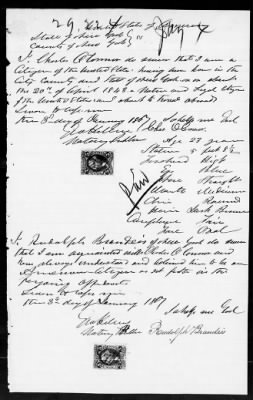 United States of America
State of New York
County of New York
I, Charles O'Connor do swear that I am a
Citizen of the United States having been born in the
City County and State of New York on or about
the 20th of April 1848 a Native and Loyal citizen
of the United States and about to travel abroad
Sworn to before me
this 3d day of January 1867 So help me God
Notary Public Chas O'Connor
Age 28 years
Stature 5 feet 8½
Forehead High
Eyes Blue
Nose Straight
Mouth Medium
Chin Round
Hair Dark Brown
Complexion Fair
Face Oval
I, Rudolph Brandeis of New York do swear
that I am acquainted with Charles O'Connor and
to be an
American Citizen as set forth in the
foregoing affidavit
Sworn to before me
this 3d day of January 1867
So help me God
Notary Public Rudolph Brandeis